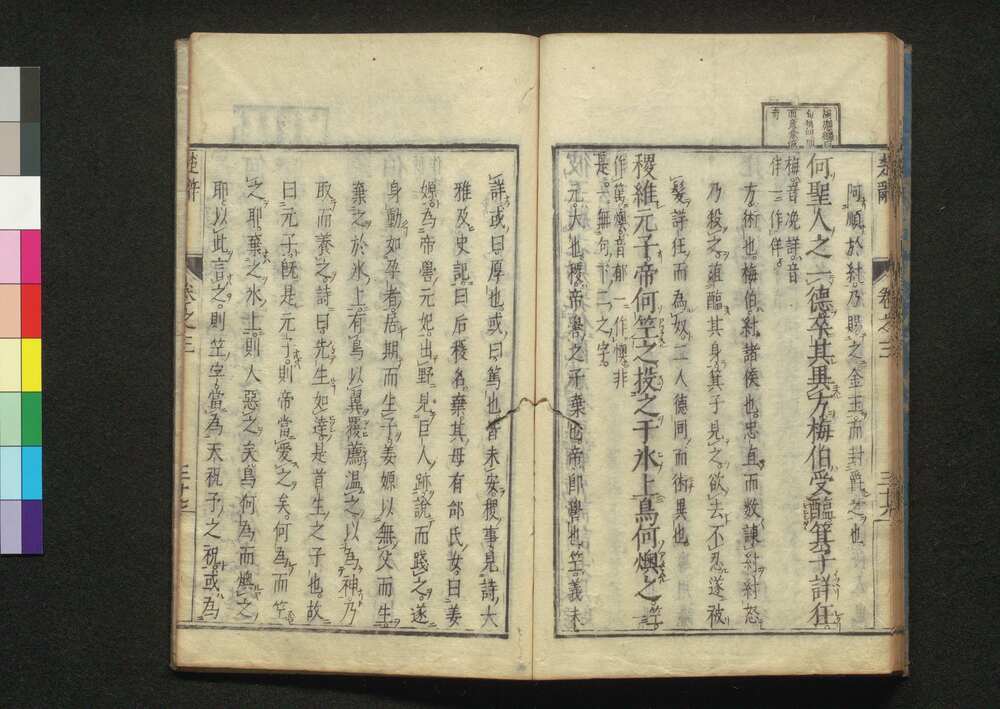 楚辭
卷之三
三十六
阿順於紂乃賜之金玉而封爵之也
何聖人之一德卒其異方梅伯受醢箕子詳狂
梅音浼詳音
佯一作佯
方術也梅伯紂諸侯也忠直而數諫紂紂怒
乃殺之菹醢其身箕子見之欲去不忍遂被
髮詳狂而為奴二人德同而術異也
稷維元子帝何竺之投之于氷上鳥何燠之
竺一
作篤燠音郁一作懊非
是一無句下二之字
元大也稷帝嚳之子棄也帝即嚳也竺義未
詳或曰厚也或曰篤也皆未安稷事見詩大
雅及史記曰后稷名棄其母有邰氏女曰姜
嫄為帝嚳元妃出野見巨人跡說而踐之遂
身動如孕者居期而生子姜嫄以無父而生
棄之於氷上有鳥以翼覆薦溫之以為神乃
取而養之詩曰先生如達是首生之子也故
曰元子旣是元子則帝當愛之矣何為而竺
之耶棄之氷上則人惡之矣鳥何為而燠之
耶以此言之則竺字當為天祝予之祝或為
楚辭
卷之三
三十七